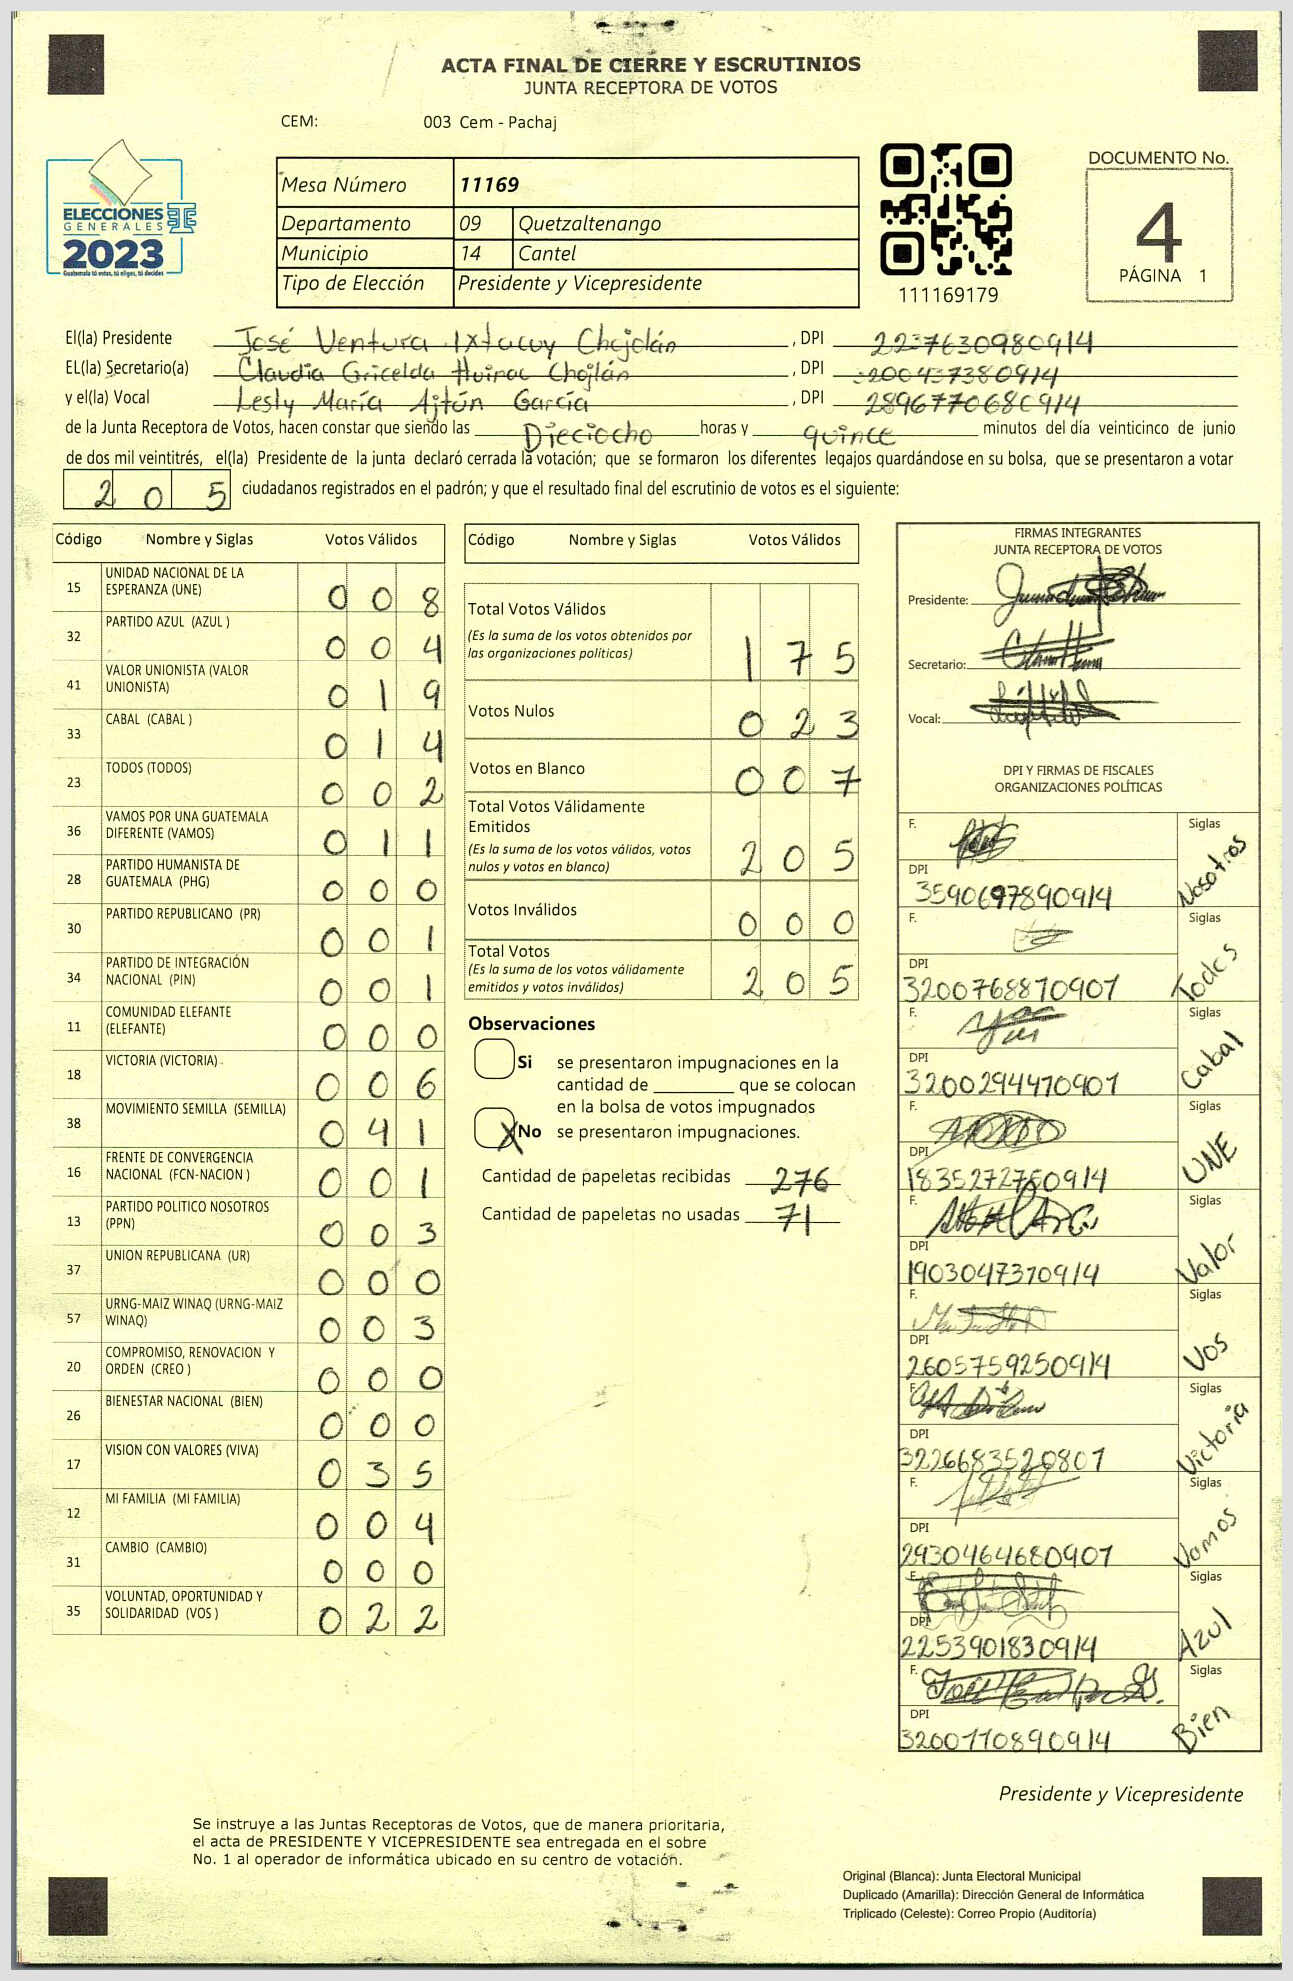 ACTA FINAL DE CIERRE Y ESCRUTINIOS
JUNTA RECEPTORA DE VOTOS
CEM: 003 Cem - Pachaj
ELECCIONES
GENERALES
2023
Guatemala tú votas, tú eliges, tú decides
Mesa Número 11169
Departamento 09 Quetzaltenango
Municipio 14 Cantel
Tipo de Elección Presidente y Vicepresidente
111169179
DOCUMENTO No.
4
PÁGINA 1
El(la) Presidente José Ventura Ixtacuy Chojolán, DPI 2237630980914
EL(la) Secretario(a) Claudia Gricelda Huinac Chojlán, DPI 3200437380914
y el(la) Vocal Lesly María Ajtún García, DPI 2896770680914
de la Junta Receptora de Votos, hacen constar que siendo las Dieciocho horas y quince minutos del día veinticinco de junio
de dos mil veintitrés, el(la) Presidente de la junta declaró cerrada la votación; que se formaron los diferentes legajos quardándose en su bolsa, que se presentaron a votar
205 ciudadanos registrados en el padrón; y que el resultado final del escrutinio de votos es el siguiente:
Código Nombre y Siglas Votos Válidos
15 UNIDAD NACIONAL DE LA ESPERANZA (UNE) 008
32 PARTIDO AZUL (AZUL ) 004
41 VALOR UNIONISTA (VALOR UNIONISTA) 019
33 CABAL (CABAL ) 014
23 TODOS (TODOS) 002
36 VAMOS POR UNA GUATEMALA DIFERENTE (VAMOS) 011
28 PARTIDO HUMANISTA DE GUATEMALA (PHG) 000
30 PARTIDO REPUBLICANO (PR) 001
34 PARTIDO DE INTEGRACIÓN NACIONAL (PIN) 001
11 COMUNIDAD ELEFANTE (ELEFANTE) 000
18 VICTORIA (VICTORIA) 006
38 MOVIMIENTO SEMILLA (SEMILLA) 041
16 FRENTE DE CONVERGENCIA NACIONAL (FCN-NACION ) 001
13 PARTIDO POLITICO NOSOTROS (PPN) 003
37 UNION REPUBLICANA (UR) 000
57 URNG-MAIZ WINAQ (URNG-MAIZ WINAQ) 003
20 COMPROMISO, RENOVACION Y ORDEN (CREO ) 000
26 BIENESTAR NACIONAL (BIEN) 000
17 VISION CON VALORES (VIVA) 035
12 MI FAMILIA (MI FAMILIA) 004
31 CAMBIO (CAMBIO) 000
35 VOLUNTAD, OPORTUNIDAD Y SOLIDARIDAD (VOS ) 022
Código Nombre y Siglas Votos Válidos
Total Votos Válidos 175
(Es la suma de los votos obtenidos por
las organizaciones politicas)
Votos Nulos 023
Votos en Blanco 007
Total Votos Válidamente
Emitidos 205
(Es la suma de los votos válidos, votos
nulos y votos en blanco)
Votos Inválidos 000
Total Votos 205
(Es la suma de los votos válidamente
emitidos y votos inválidos)
Observaciones
Si se presentaron impugnaciones en la
cantidad de ________ que se colocan
en la bolsa de votos impugnados
X No se presentaron impugnaciones.
Cantidad de papeletas recibidas 276
Cantidad de papeletas no usadas 71
FIRMAS INTEGRANTES
JUNTA RECEPTORA DE VOTOS
Presidente:
Secretario:
Vocal:
DPI Y FIRMAS DE FISCALES
ORGANIZACIONES POLÍTICAS
F. Siglas Nosotros
DPI 3590697890914
F. Siglas Todos
DPI 3200768870901
F. Siglas Cabal
DPI 3200294470901
F. Siglas UNE
DPI 1835272760914
F. Siglas Valor
DPI 1903047370914
F. Siglas Vos
DPI 2605759250914
F. Siglas Victoria
DPI 3226683520801
F. Siglas Vamos
DPI 2930464680901
F. Siglas Azul
DPI 2253901830914
F. Siglas Bien
DPI 3200110890914
Presidente y Vicepresidente
Se instruye a las Juntas Receptoras de Votos, que de manera prioritaria,
el acta de PRESIDENTE Y VICEPRESIDENTE sea entregada en el sobre
No. 1 al operador de informática ubicado en su centro de votación.
Original (Blanca): Junta Electoral Municipal
Duplicado (Amarilla): Dirección General de Informática
Triplicado (Celeste): Correo Propio (Auditoría)